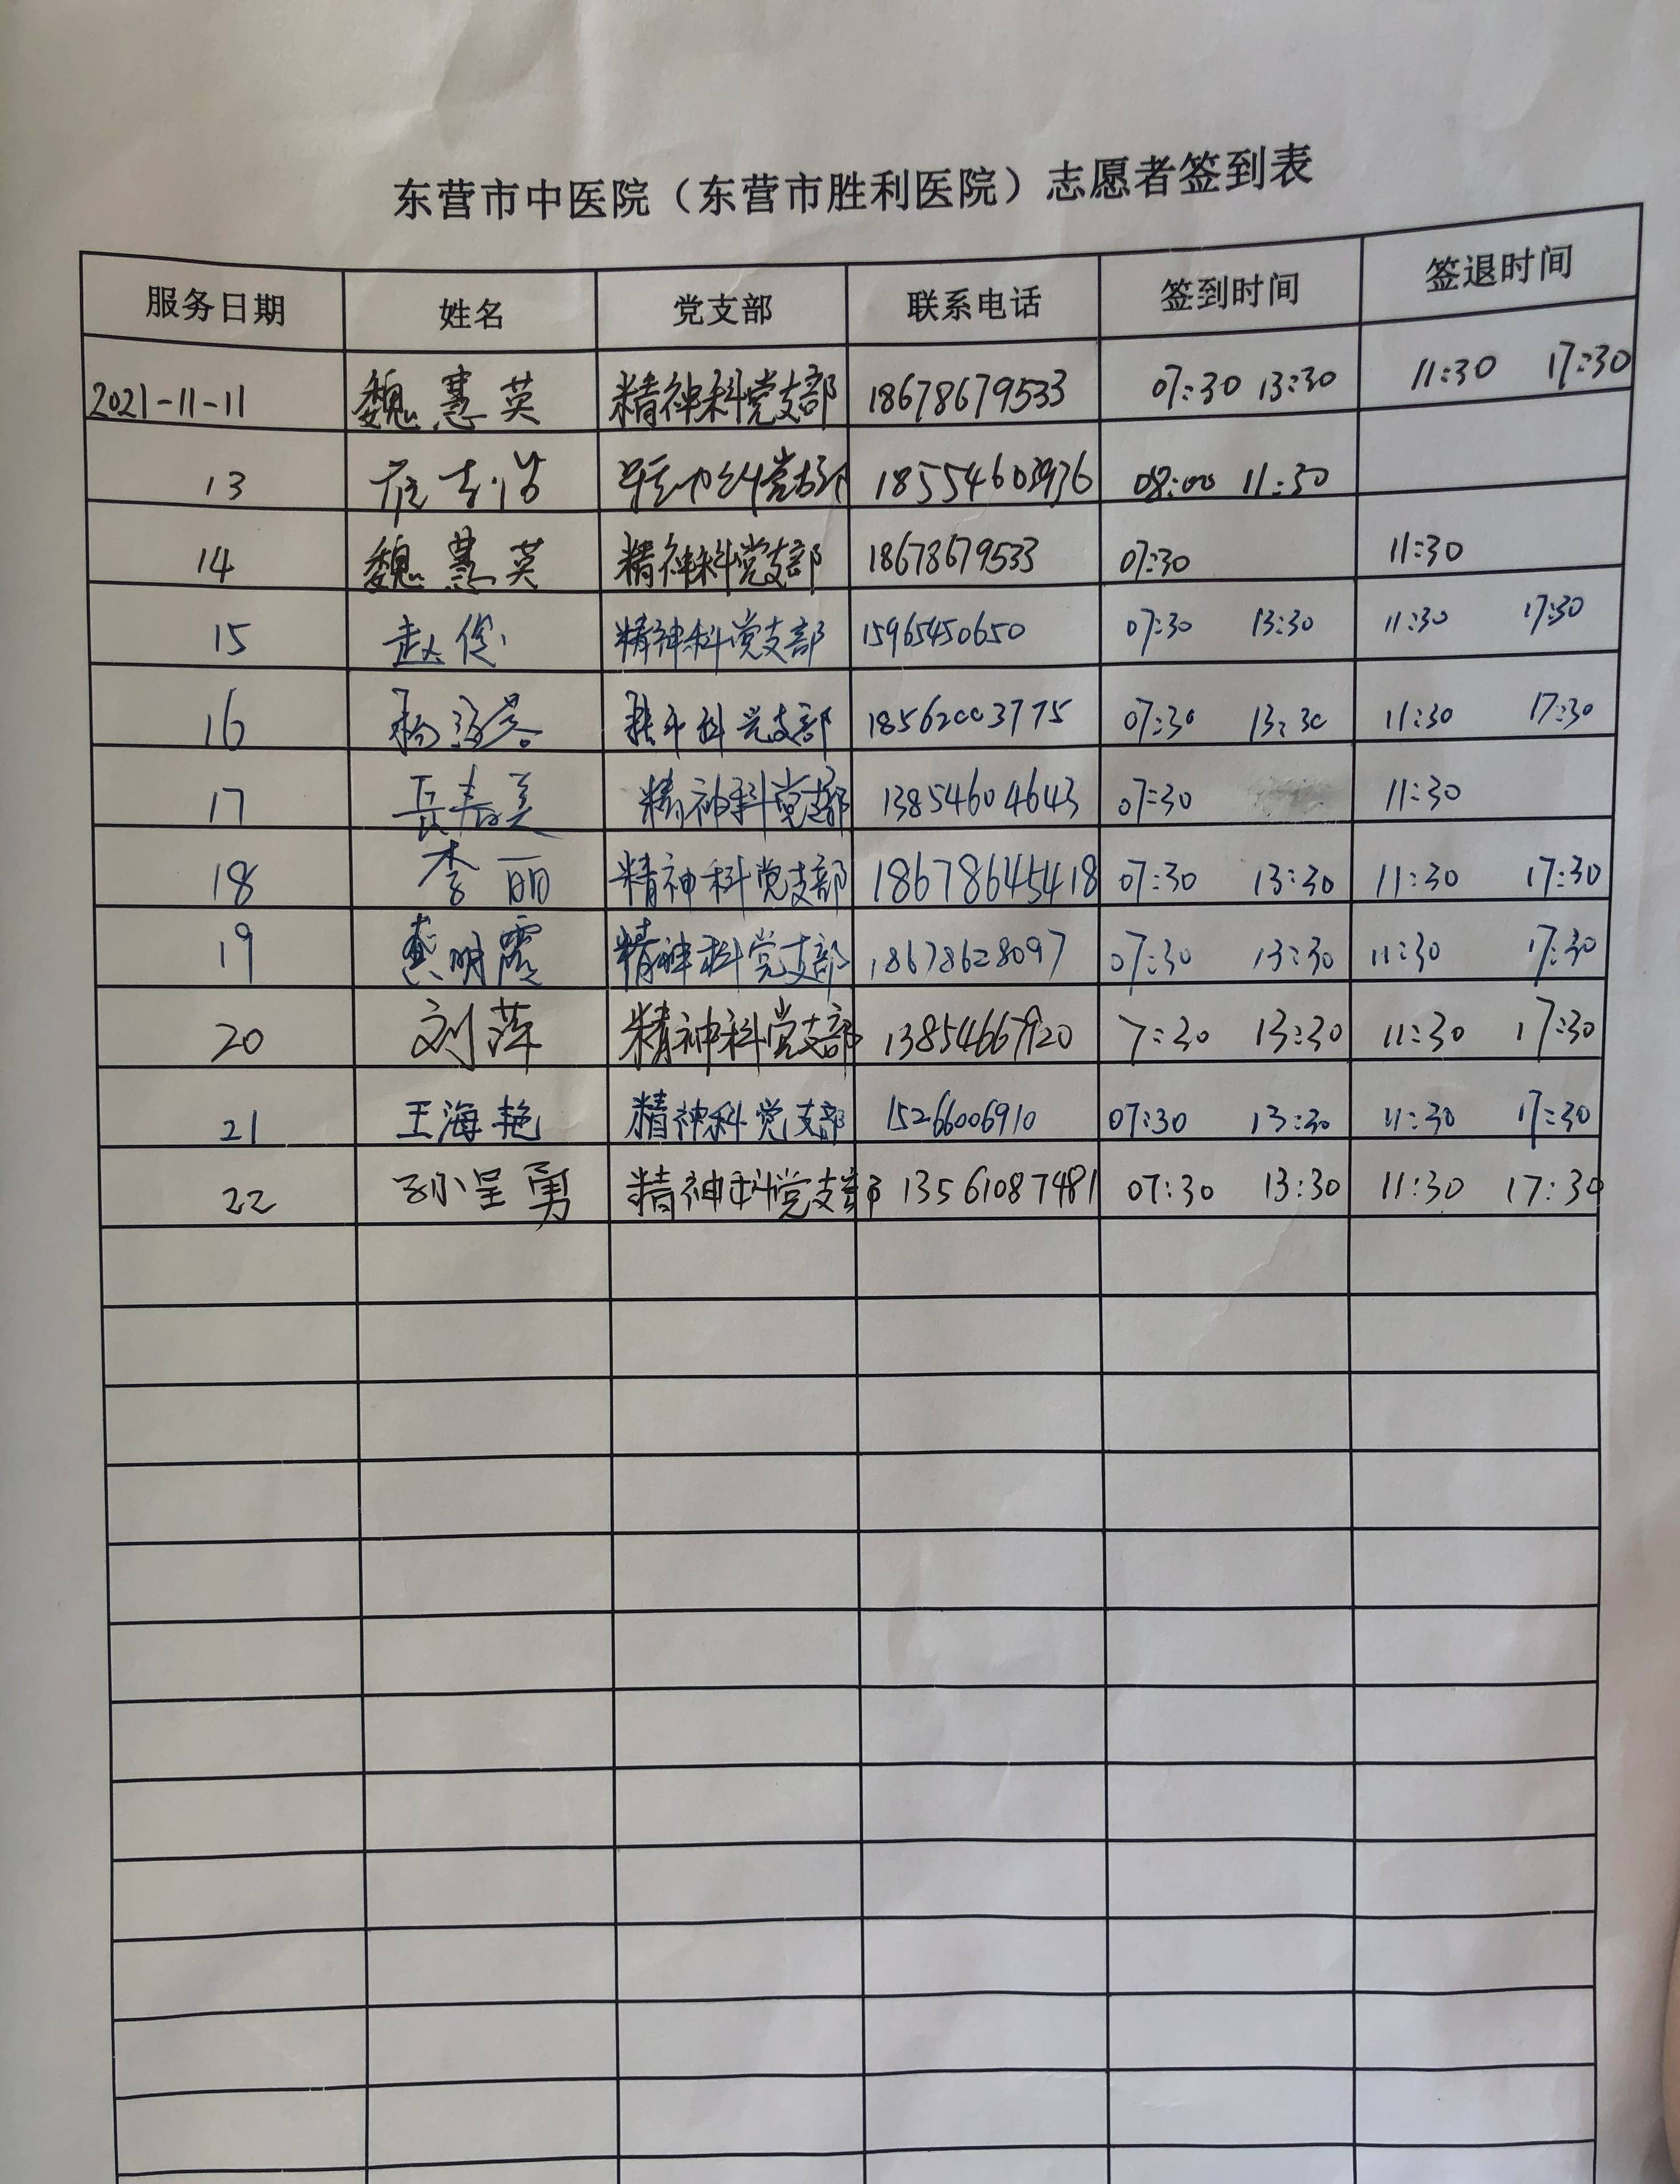 东营市中医院（东营市胜利医院）志愿者签到表
服务日期 姓名 党支部 联系电话 签到时间 签退时间
2021-11-11 魏慧英 精神科党支部 18678679533 07:30 13:30 11:30 17:30
13 党支部 18554603976 08:00 11:30
14 魏慧英 精神科党支部 18678679533 07:30 11:30
15 赵俊 精神科党支部 15965450650 07:30 13:30 11:30 17:30
16 杨 精神科党支部 18562003775 07:30 13:30 11:30 17:30
17 精神科党支部 13854604643 07:30 11:30
18 李丽 精神科党支部 18678645418 07:30 13:30 11:30 17:30
19 龚明霞 精神科党支部 18678628097 07:30 13:30 11:30 17:30
20 刘萍 精神科党支部 13854667920 7:30 13:30 11:30 17:30
21 王海艳 精神科党支部 15266006910 07:30 13:30 11:30 17:30
22 孙呈勇 精神科党支部 13561087481 07:30 13:30 11:30 17:30